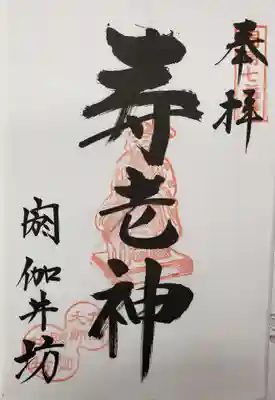 奉拝
寿老神
閼伽井坊